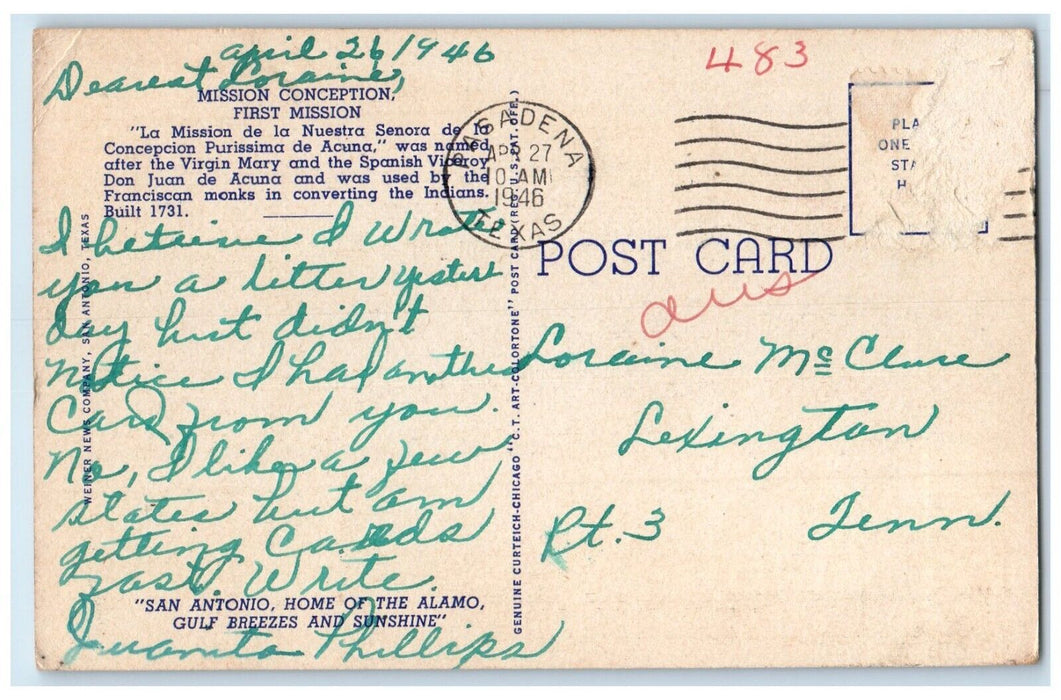 April 26 1946
Dearest Loraine,
MISSION CONCEPTION,
FIRST MISSION
"La Mission de la Nuestra Senora de la
Concepcion Purissima de Acuna," was named
after the Virgin Mary and the Spanish Viceroy
Don Juan de Acuna and was used by the
Franciscan monks in converting the Indians.
Built 1731.
I believe I wrote
you a letter yester
day but didn't
notice I had another
Card from you.
No, I like a few
states but am
getting Cards
fast. Write.
"SAN ANTONIO, HOME OF THE ALAMO,
GULF BREEZES AND SUNSHINE"
Juanita Phillips
WEINER NEWS COMPANY, SAN ANTONIO, TEXAS
GENUINE CURTEICH-CHICAGO "C.T. ART-COLORTONE" POST CARD (REG. U.S. PAT. OFF.)
PASADENA
APR 27
10 AM
1946
TEXAS
483
PLA
ONE
STA
H
POST CARD
ans
Loraine McClure
Lexington
Rt. 3 Tenn.